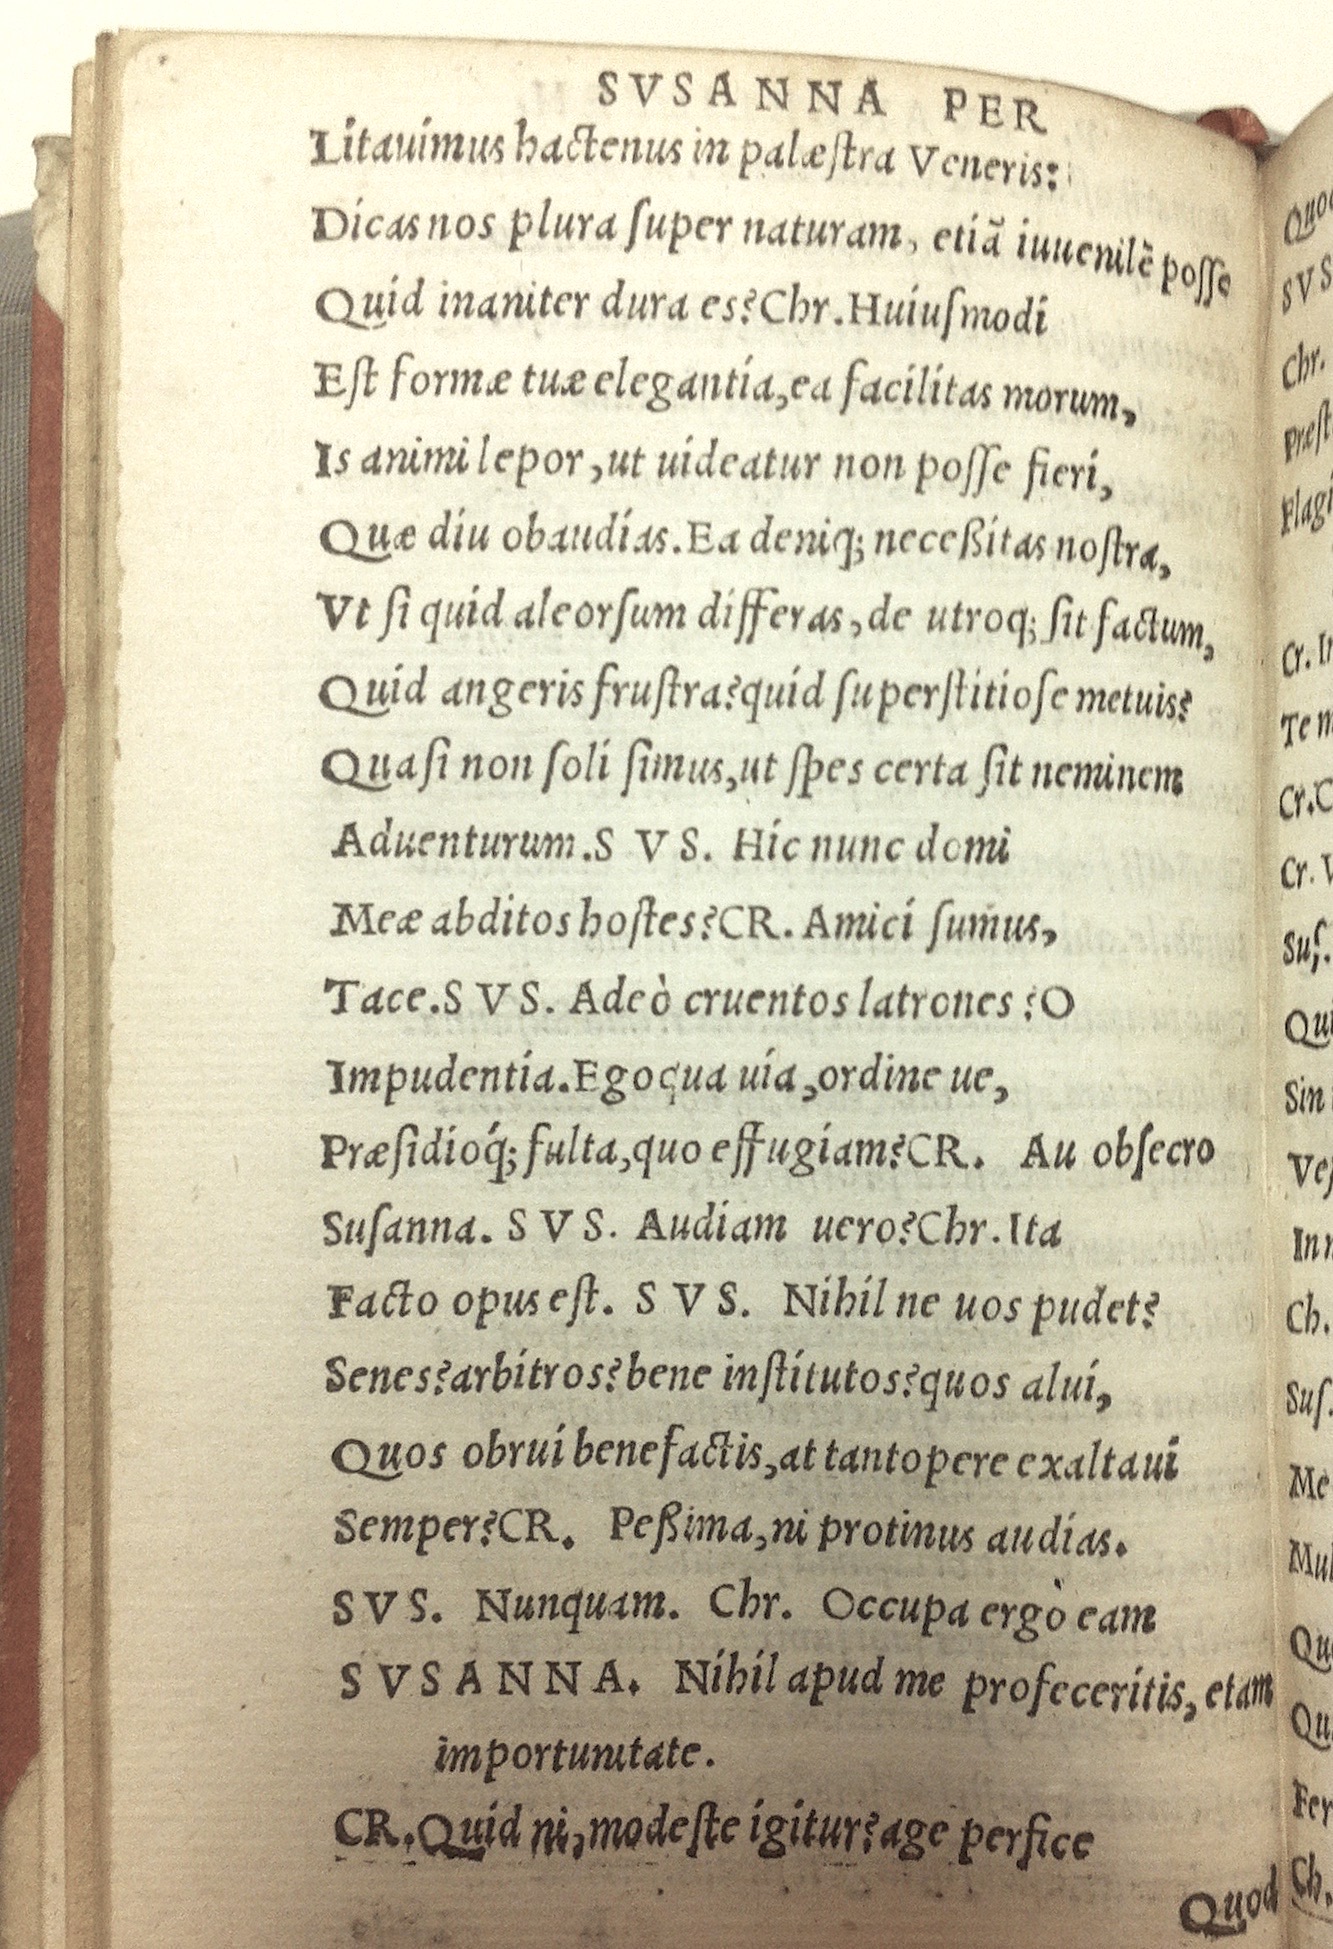 SVSANNA PER
Litauimus hactenus in palæſtra Veneris:
Dicas nos plura ſuper naturam, etiã iuuenilẽ poſſe
Quid inaniter dura es? Chr. Huiuſmodi
Eſt formæ tuæ elegantia, ea facilitas morum,
Is animi lepor, ut uideatur non poſſe fieri,
Quæ diu obaudias. Ea deniq; neceßitas noſtra,
Vt ſi quid aleorſum differas, de utroq; ſit factum,
Quid angeris fruſtra? quid ſuperſtitioſe metuis?
Quaſi non ſoli ſimus, ut ſpes certa ſit neminem
Aduenturum. SVS. Hic nunc domi
Meæ abditos hoſtes? CR. Amici ſumus,
Tace. SVS. Adeò cruentos latrones? O
Impudentia. Ego qua uia, ordine ue,
Præſidioq́; fulta, quo effugiam? CR. Au obſecro
Suſanna. SVS. Audiam uero? Chr. Ita
Facto opus eſt. SVS. Nihil ne uos pudet?
Senes? arbitros? bene inſtitutos? quos alui,
Quos obrui benefactis, at tantopere exaltaui
Semper? CR. Peßima, ni protinus audias.
SVS. Nunquam. Chr. Occupa ergò eam
SVSANNA. Nihil apud me profeceritis, etam
importunitate.
CR. Quid ni, modeſte igitur? age perfice
Quod
Quo
SVS
Chr.
Præſt
Plagi
Cr. In
Te m
Cr. C
Cr. V
Suſ.
Qui
Sin
Veſ
In n
Ch.
Suſ.
Me
Mul
Qu
Qu
Fer
Ch.